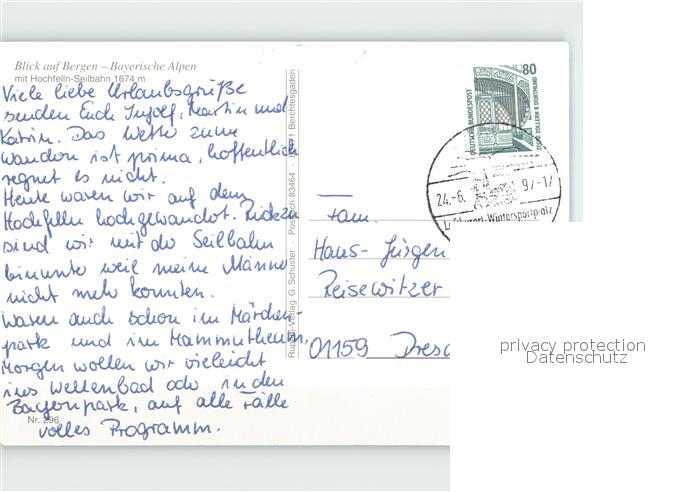 Blick auf Bergen – Bayerische Alpen
mit Hochfelln-Seilbahn 1674 m
Viele liebe Urlaubsgrüße
senden Euch Ingolf, Martin und
Katrin. Das Wetter zum
wandern ist prima, hoffentlich
regnet es nicht.
Heute waren wir auf dem
Hochfelln hochgewandert. Rückzu
sind wir mit der Seilbahn
hinunter weil meine Männer
nicht mehr konnten.
Waren auch schon im Märchen-
park und im Mammutheum,
Morgen wollen wir vieleicht
ins Wellenbad oder in den
Bayernpark, auf alle Fälle
volles Programm.
Nr. 296
Verlag G. Schuster · Postfach 83464 · Berchtesgaden
80
DEUTSCHE BUNDESPOST
ZECHE ZOLLERN II DORTMUND
24.-6. 97-17
Wintersportplatz
Fam.
Hans-Jürgen
Reisewitzer
01159 Dresd
privacy protection
Datenschutz